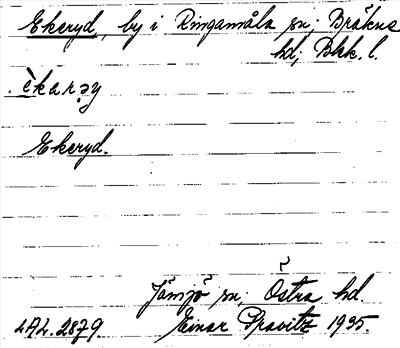 Ekeryd, by i Ringamåla sn; Bräkne
hd, Blek. l.
èkarəy
Ekeryd.
Jämjö sn; Östra hd.
LAL. 2879. Einar Pravitz 1935.